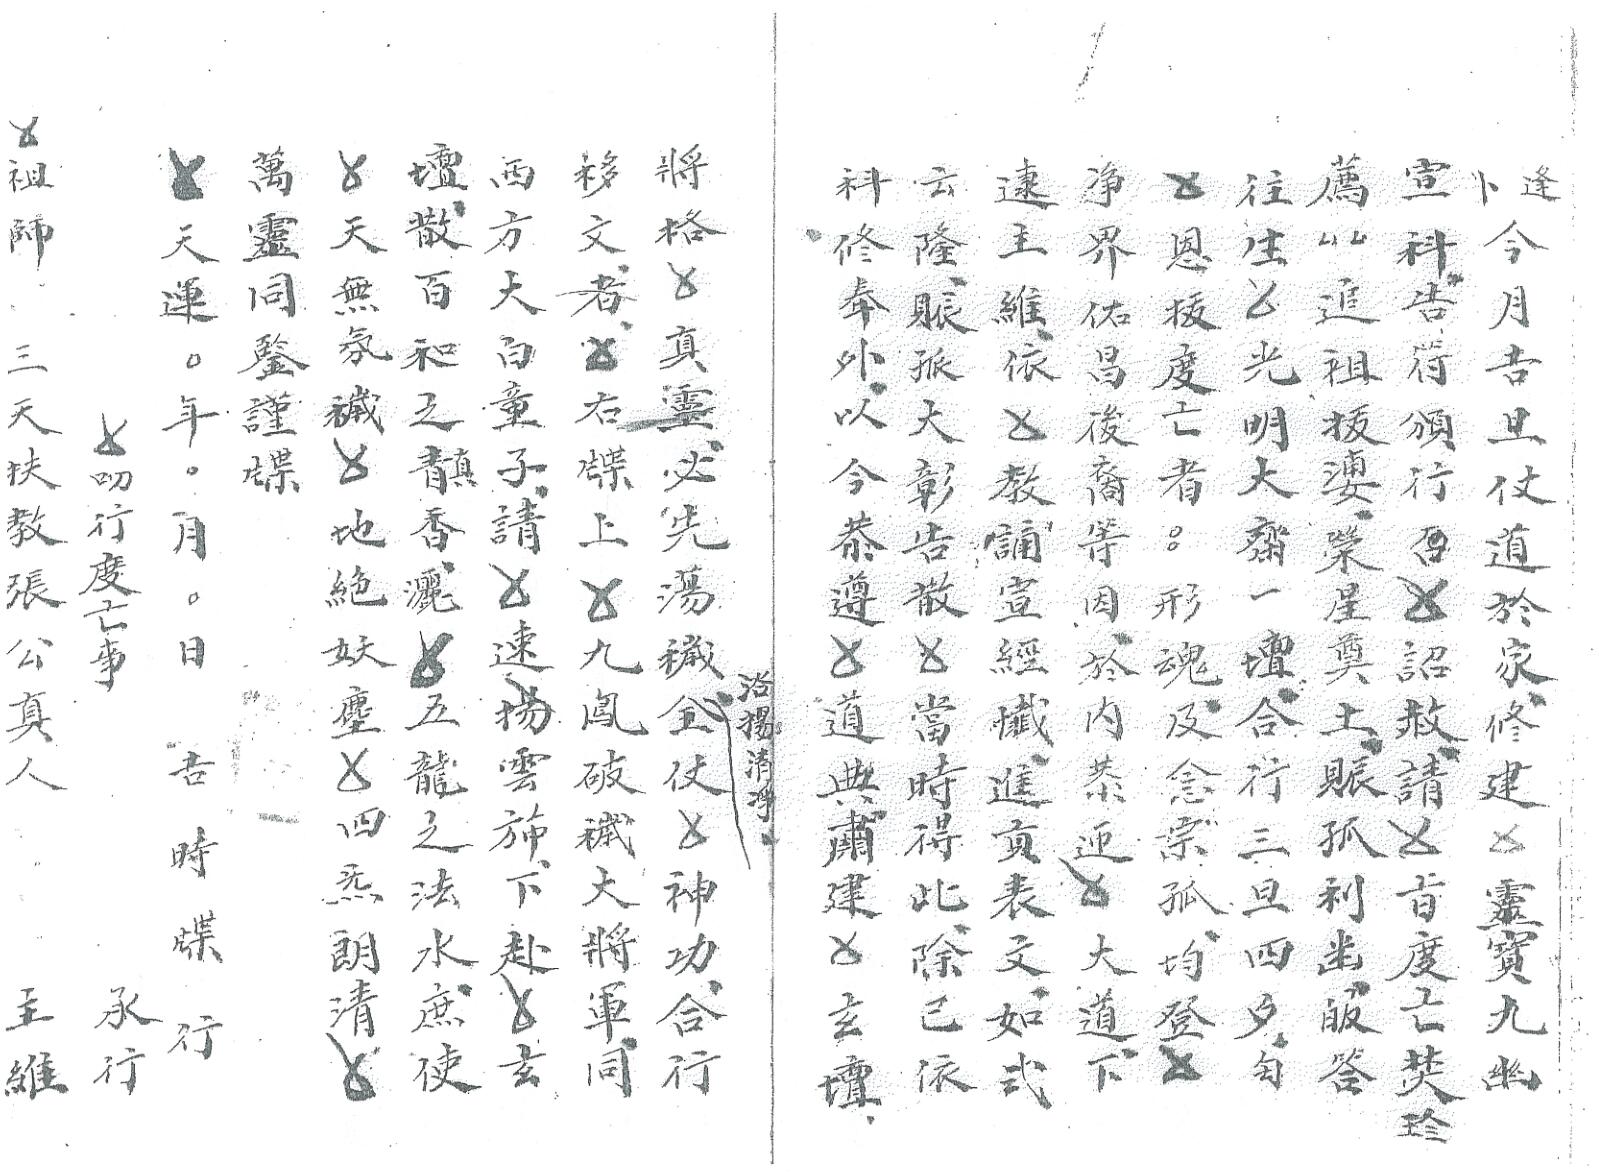 逢
卜今月吉旦仗道於家修建靈寶九幽
宣科告符頒行詔赦請旨度亡焚珍
薦追祖拔婆榮星奠土賑孤利幽皈答
往生光明大齋一壇合行三旦四夕匄
恩拔度亡者。形魂及念宗孤均登
净界佑昌後裔等因於內恭迎大道下
逮主維依教誦宣經懺進貢表文如式
云隆賑孤大彰告散當時得此除已依
科修奉外以今恭遵道典肅建玄壇
浴揚清淨
將格真靈必先蕩穢全仗神功合行
移文者右牒上九鳳破穢大將軍同
西方大白童子請速揚雲斾下赴玄
壇散百和之青真香灑五龍之法水庶使
天無氛穢地絕妖塵四炁朗清
萬靈同鑒謹牒
天運。年。月。日 吉時牒行
叨行度亡事 承行
祖師 三天扶教張公真人 主維